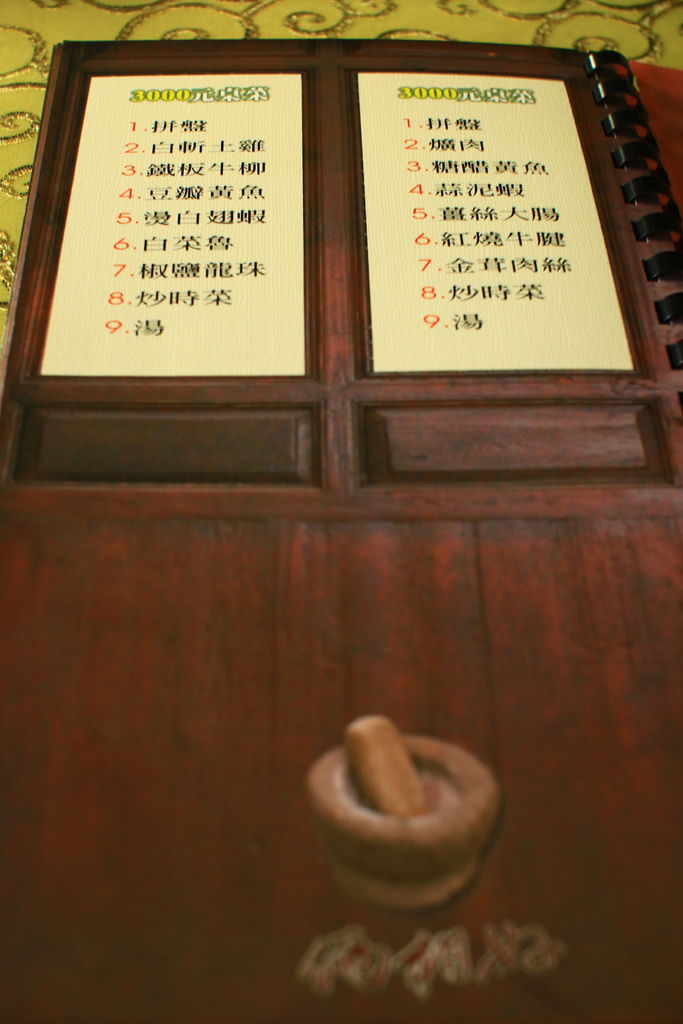 3000元桌菜
1.拼盤
2.白斬土雞
3.鐵板牛柳
4.豆瓣黃魚
5.燙白翅蝦
6.白菜魯
7.椒鹽龍珠
8.炒時菜
9.湯
3000元桌菜
1.拼盤
2.爌肉
3.糖醋黃魚
4.蒜泥蝦
5.薑絲大腸
6.紅燒牛腱
7.金茸肉絲
8.炒時菜
9.湯